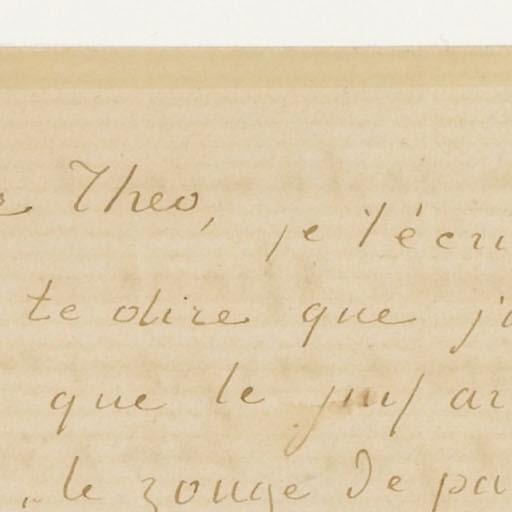 Theo,
je t'écri
te dire que j'a
que le
le zouge de pa